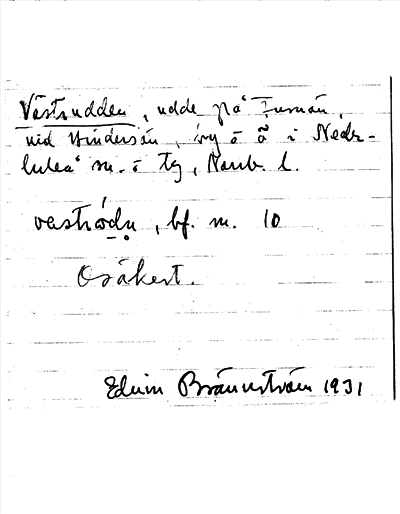 Västrudden, udde på Furuön,
vid Hindersön, by o ö i Neder-
luleå sn. o tg, Norrb. l.
vestródn, bf. m. 10
Osäkert.
Edvin Brännström 1931